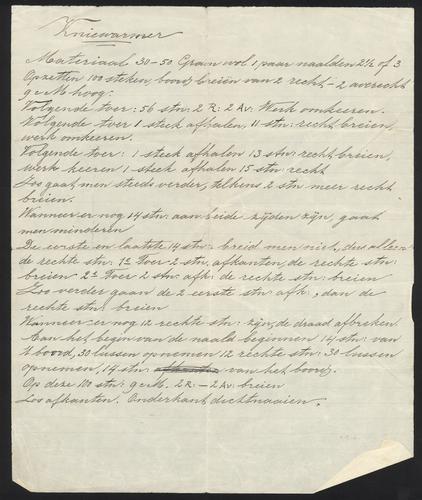 Kniewarmer
Materiaal 30-50 Gram wol 1 paar naalden 2½ of 3
Opzetten 100 steken, boord breiën van 2 recht - 2 averecht
9 c.M. hoog.
Volgende toer: 56 stn: 2 R: 2 Av: Werk omkeeren.
Volgende toer 1 steek afhalen, 11 stn: recht breien,
werk omkeeren.
Volgende toer: 1 steek afhalen 13 stn: recht breien,
werk keeren 1 steek afhalen 15 stn: recht
Zoo gaat men steeds verder, telkens 2 stn meer recht
breien.
Wanneer er nog 14 stn: aan beide zijden zijn, gaat
men minderen
De eerste en laatste 14 stn: breid men niet, dus alleen
de rechte stn: 1e Toer 2 stn. afkanten, de rechte stn:
breien - 2e Toer 2 stn: afk: de rechte stn: breien
Zoo verder gaan de 2 eerste stn: afk:, dan de
rechte stn: breien
Wanneer er nog 12 rechte stn: zijn, de draad afbreken
Aan het begin van de naald beginnen 14 stn: van
't boord, 30 lussen opnemen 12 rechte stn: 30 lussen
opnemen, 14 stn: van het boord.
Op deze 100 stn: 9 c.M. 2 R: - 2 Av: breien
Los afkanten. Onderkant dichtnaaien.